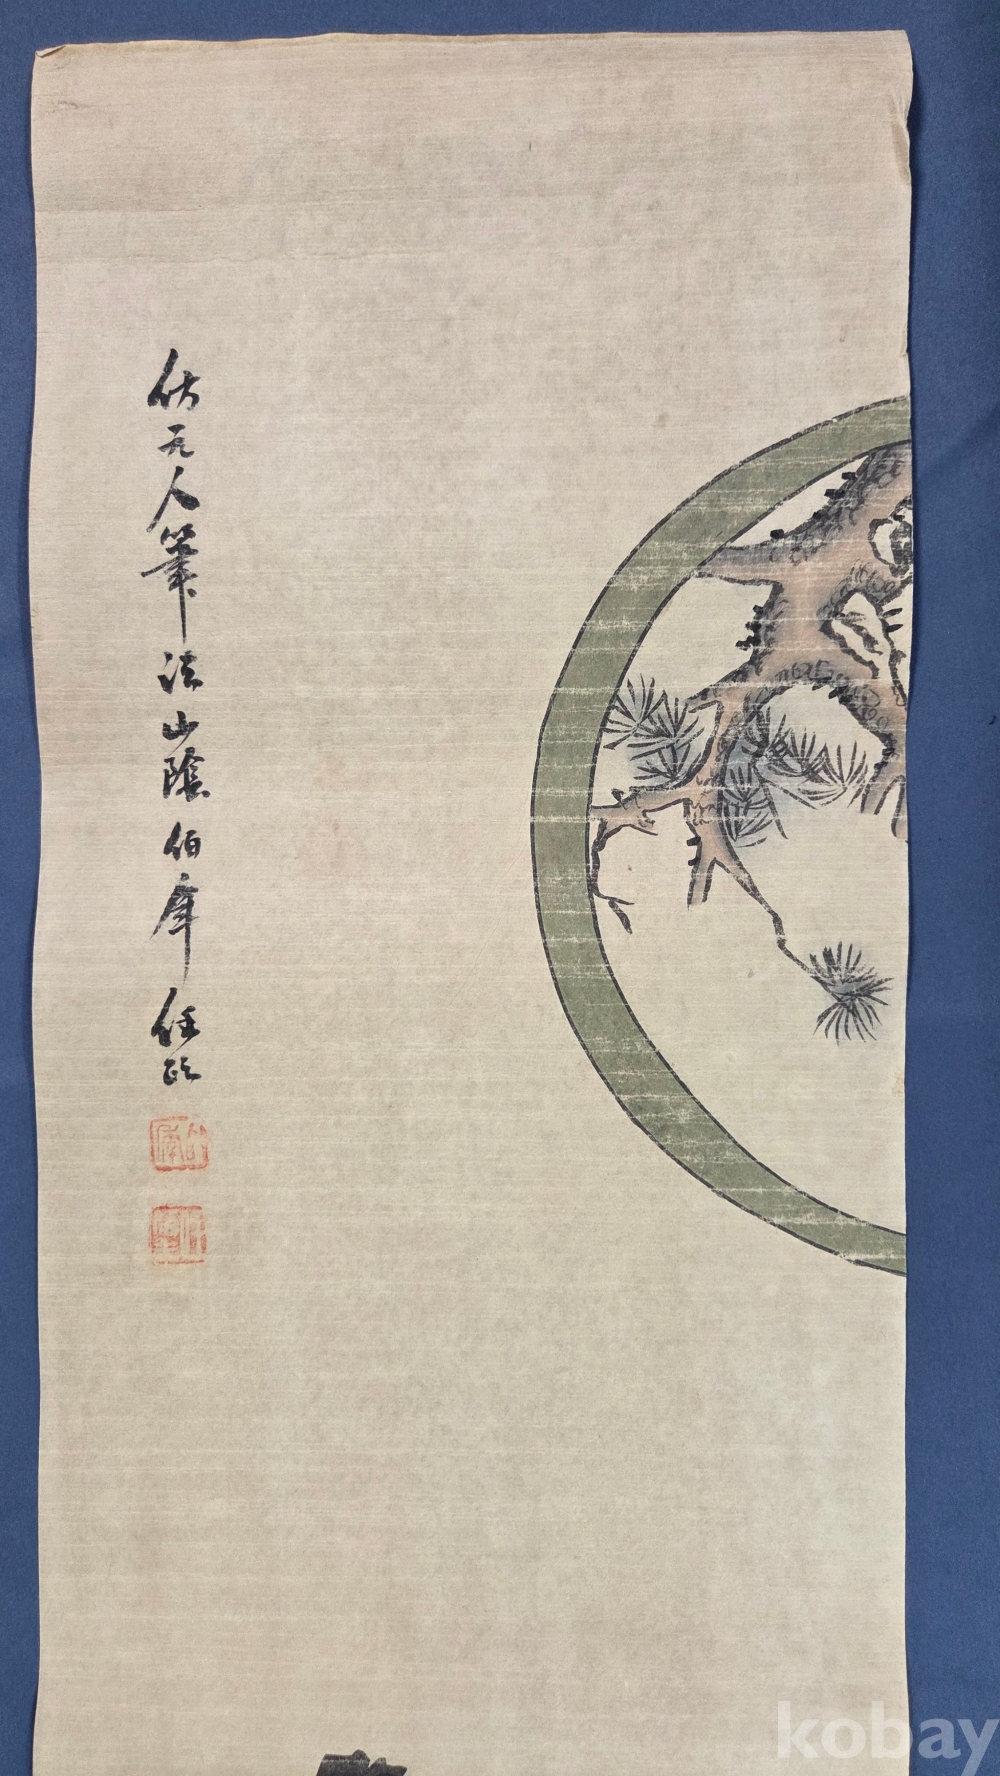 仿元人筆法山陰伯年任頤
kobay